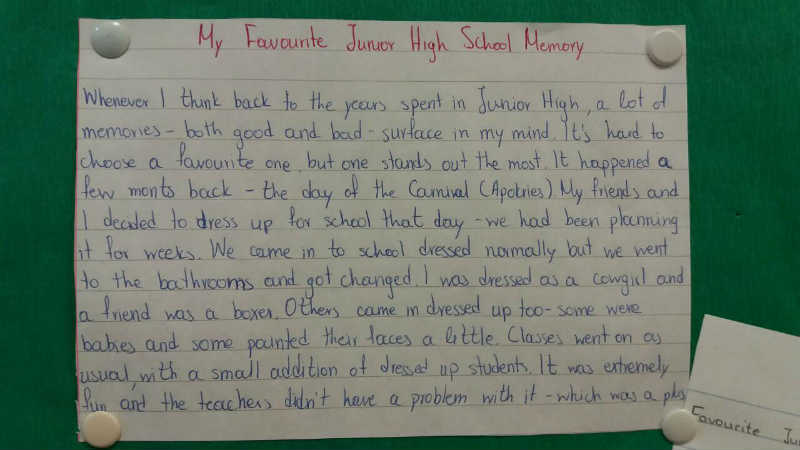 My Favourite Junior High School Memory
Whenever I think back to the years spent in Junior High, a lot of
memories - both good and bad - surface in my mind. It's hard to
choose a favourite one, but one stands out the most. It happened a
few monts back - the day of the Carnival (Apokries) My friends and
I decided to dress up for school that day - we had been planning
it for weeks. We came in to school dressed normally but we went
to the bathrooms and got changed. I was dressed as a cowgirl and
a friend was a boxer. Others came in dressed up too - some were
babies and some painted their faces a little. Classes went on as
usual, with a small addition of dressed up students. It was extremely
fun and the teachers didn't have a problem with it - which was a plus
Favourite Ju